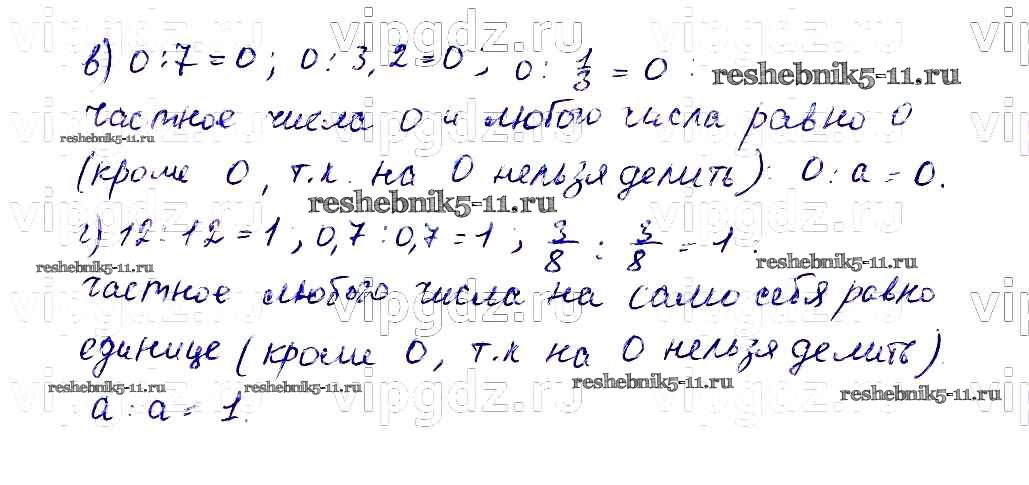 в) 0 : 7 = 0; 0 : 3,2 = 0; 0 : 1/3 = 0 :
частное числа 0 и любого числа равно 0
(кроме 0, т.к. на 0 нельзя делить): 0 : a = 0.
г) 12 : 12 = 1, 0,7 : 0,7 = 1; 3/8 : 3/8 = 1 :
частное любого числа на само себя равно
единице (кроме 0, т.к на 0 нельзя делить).
a : a = 1.
vipgdz.ru vipgdz.ru vipgdz.ru
reshebnik5-11.ru
vipgdz.ru vipgdz.ru vipgdz.ru
reshebnik5-11.ru
vipgdz.ru vipgdz.ru vipgdz.ru
reshebnik5-11.ru
reshebnik5-11.ru reshebnik5-11.ru
vipgdz.ru vipgdz.ru vipgdz.ru
reshebnik5-11.ru reshebnik5-11.ru reshebnik5-11.ru reshebnik5-11.ru
vipgdz.ru vipgdz.ru vipgdz.ru